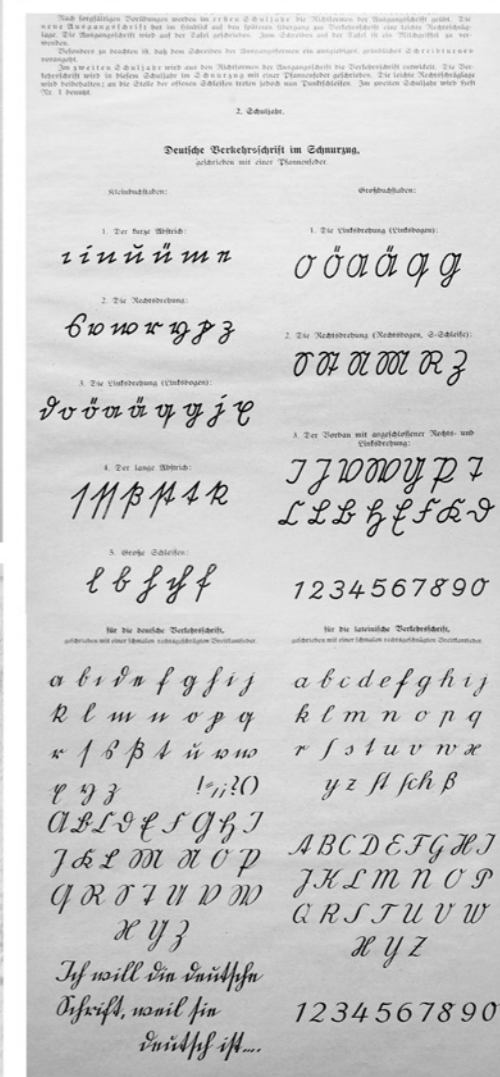 Nach sorgfältigen Vorübungen werden im ersten Schuljahr die Richtformen der Ausgangsschrift geübt. Die
neue Ausgangsschrift ist im Hinblick auf den späteren eine leichte Rechtsschräg-
lage. Die Ausgangsschrift wird auf der Tafel geschrieben. Zum Schreiben auf der Tafel ist ein Milchgriffel zu ver-
wenden.
Besonders zu beachten ist, daß dem Schreiben der Ausgangsformen ein ausgiebiges, gründliches Schreibturnen
vorangeht.
Im zweiten Schuljahr wird aus den Richtformen der Ausgangsschrift die Verkehrsschrift entwickelt. Die Ver-
kehrsschrift wird in diesem Schuljahr im Schnurzug mit einer Pfannenfeder geschrieben. Die leichte Rechtsschräglage
wird beibehalten; an die Stelle der offenen Schleifen treten jedoch nun Punktschleifen. Im zweiten Schuljahr wird Heft
Nr. 1 benutzt.
2. Schuljahr.
Deutsche Verkehrsschrift im Schnurzug,
geschrieben mit einer Pfannenfeder.
Kleinbuchstaben:
1. Der kurze Abstrich:
ı i n ŭ ü m e
2. Die Rechtsdrehung:
3. Die Linksdrehung (Linksbogen):
4. Der lange Abstrich:
5. Große Schleifen:
l b h ch f
Großbuchstaben:
1. Die Linksdrehung (Linksbogen):
O Ö A Ä Q G
2. Die Rechtsdrehung (Rechtsbogen, S-Schleife):
3. Der Vorbau mit angeschlossener Rechts- und
Linksdrehung:
1 2 3 4 5 6 7 8 9 0
für die deutsche Verkehrsschrift,
geschrieben mit einer schmalen rechtsgeschrägten Breitkantfeder.
a b c d e f g h i j
k l m n o p q
r ſ s ß t u v w
x y z ! = , ; ? ( )
A B C D E F G H I
J K L M N O P
Q R S T U V W
X Y Z
Ich will die deutsche
Schrift, weil sie
deutsch ist....
für die lateinische Verkehrsschrift,
geschrieben mit einer schmalen rechtsgeschrägten Breitkantfeder.
a b c d e f g h i j
k l m n o p q
r ſ s t u v w x
y z ſt ſch ß
A B C D E F G H I
J K L M N O P
Q R S T U V W
X Y Z
1 2 3 4 5 6 7 8 9 0